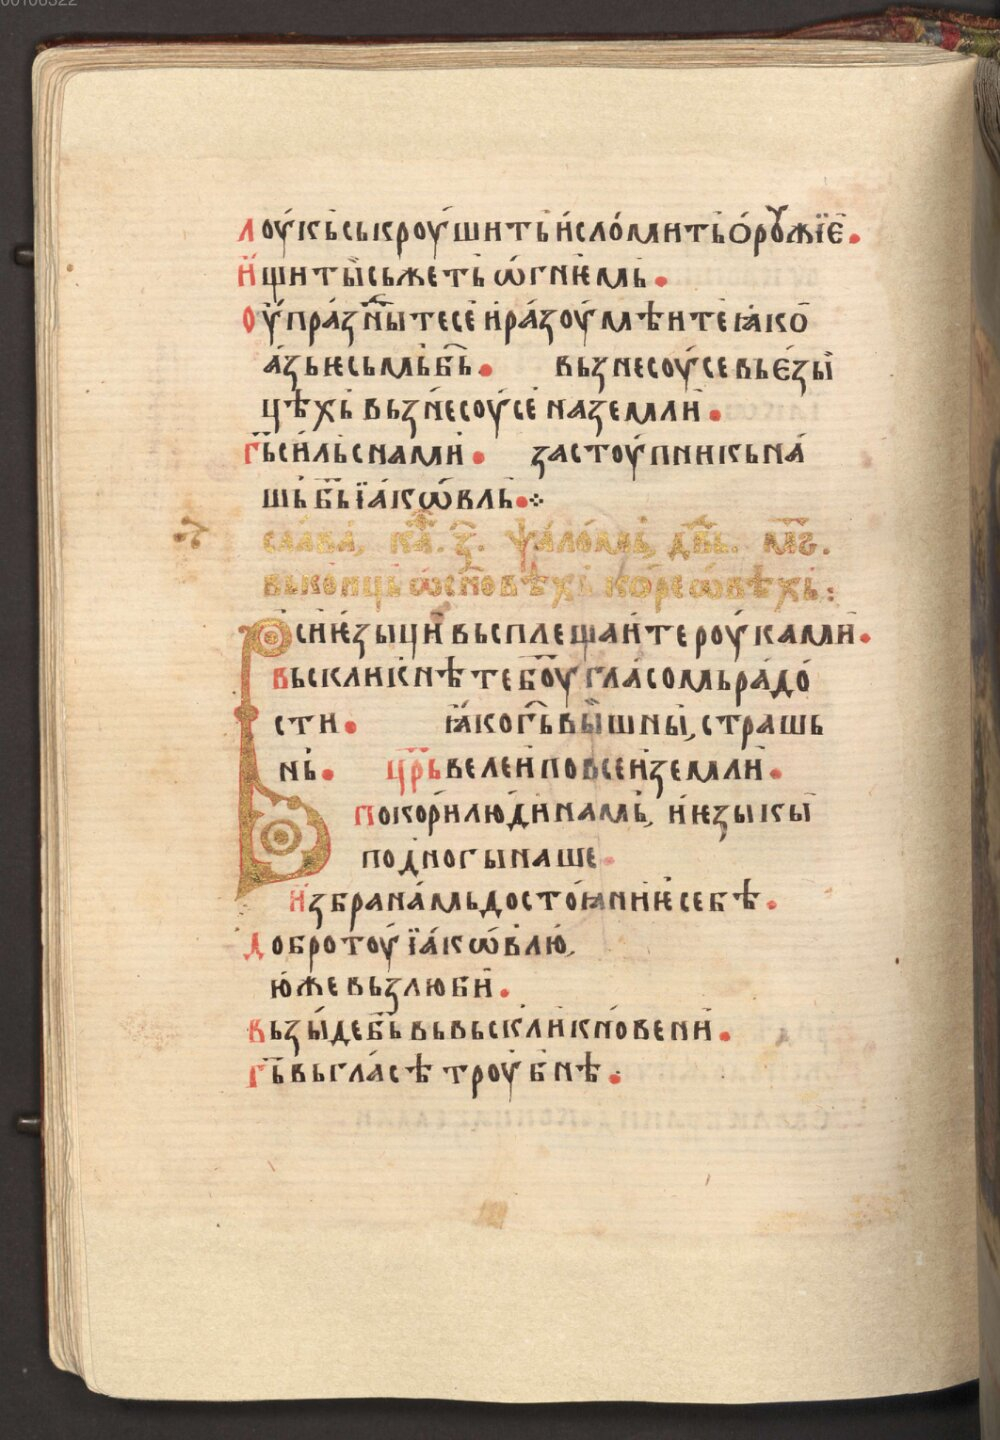 00106322
лоу́кь ськроу́шить и҆ сло́мить ѻ҆рꙋ́жїѥ.
и҆ щиты̀ сьжеть ѡ҆гнѥмь.
оу҆пра́зⷩ҇ытесе и҆ ра́зоумѣите ꙗ҆ко
а҆зь ѥсьмь б҃ь. вьзнесоу́се вь є҆зы
цѣхь вьзнесоу́се на земли.
г҃ь си́ль с нами. застоу́пникь на́
шь б҃ь їа́кѡвль.
сла́ва, ка́ⷴ. з҃. ѱало́мь, дв҃ь. м҃ѕ.
вь конць ѡ҆ сн҃овѣхь корѐѡвѣхь:
Вси ѥ҆зыци вьсплещаи́те роу́ками.
вьскликнѣте б҃оу гла́сомь ра́до
сти. ꙗ҆ко г҃ь вы́шны, страшь
нь. ц҃рь велеи по всеи земли.
покори́ люди намь, и҆ ѥзыкы
под ногы наше.
и҆збра на́мь досто́ꙗниѥ себѣ.
доброту їа́кѡвлю,
ю҆же вьзлюби.
вьзы́де б҃ь вь вьскликновени.
г҃ь вь гла́сѣ троу́бнѣ.